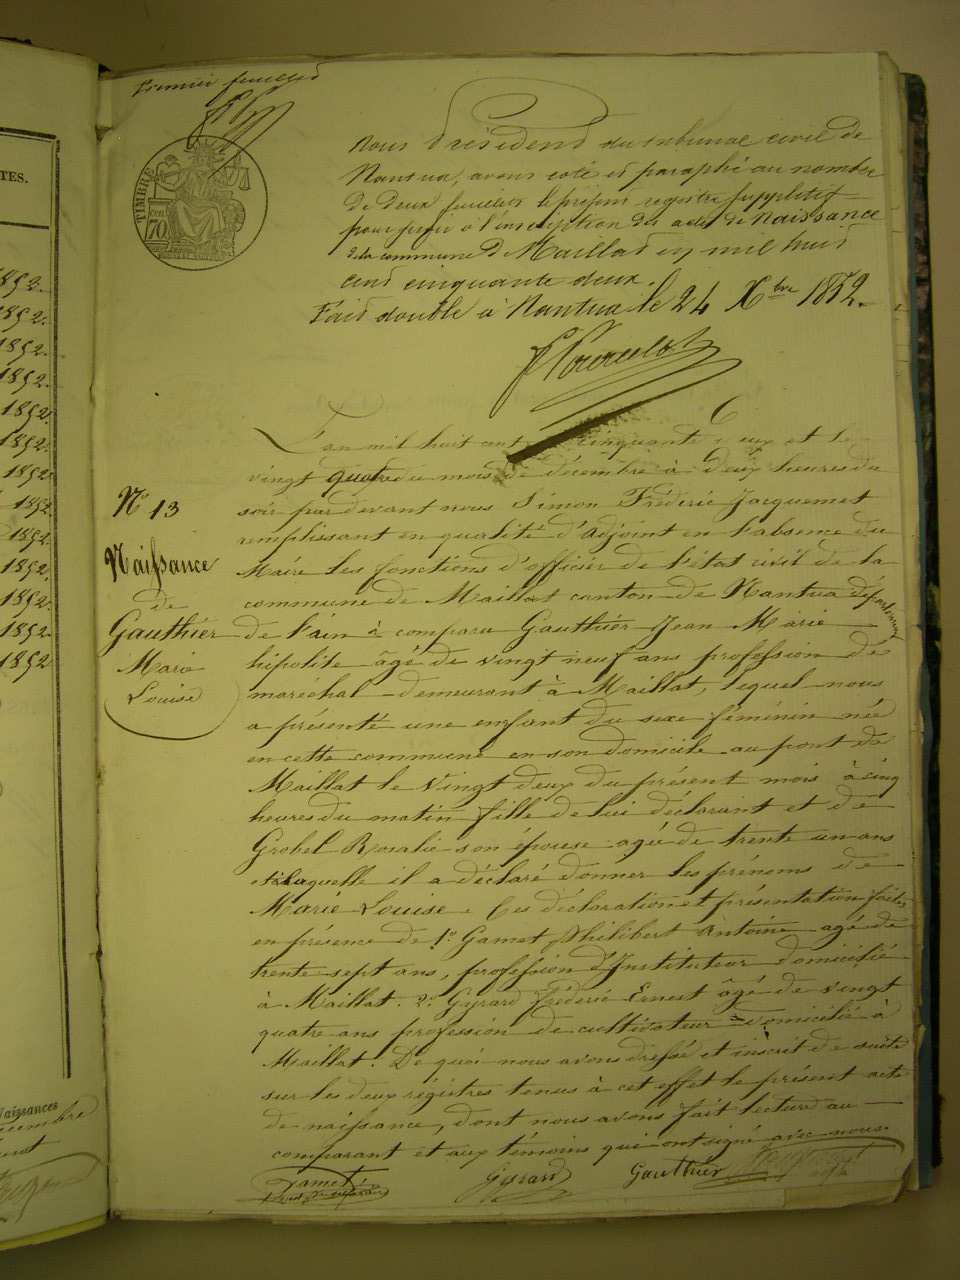 TES.
1852.
1852.
1852.
1852.
1852.
1852.
1852
1852.
1852.
1852.
1852.
1852.
1852
Naissances
Premier feuillet
TIMBRE
70
Nous Président du tribunal civil de
Nantua, avons coté et paraphé au nombre
de deux feuillets le présent registre supplétif
pour servir à l'inscription des actes de Naissance
de la commune d Maillat en mil huit
cent cinquante deux.
Fait double à Nantua le 24 Xbre 1852.
L'an mil huit cent cinquante deux et le
vingt quatre du mois de décembre à deux heures du
soir par devant nous Simon Frédéric Jacquemet
remplissant en qualité d'adjoint en l'absence du
Maire les fonctions d'officier de l'état civil de la
commune de Maillat canton de Nantua département
de l'ain à comparu Gauthier Jean Marie
hipolite âgé de vingt neuf ans profession de
maréchal demeurant à Maillat, lequel nous
a présenté une enfant du sexe féminin née
en cette commune en son domicile au pont de
Maillat le vingt deux du présent mois à cinq
heures du matin fille de lui déclarant et de
Grobel Rosalie son épouse agée de trente un ans
et à laquelle il a déclaré donner les prénoms de
Marie Louise. Ces déclaration et présentation faites
en présence de 1.o Gamet Philibert Antoine agé de
trente sept ans, profession d'Instituteur domicilié
à Maillat. 2.o Gyrard Frédéric Ernest âgé de vingt
quatre ans profession de cultivateur domicilié à
Maillat. De quoi nous avons dressé et inscrit de suite
sur les deux régistres tenus à cet effet le présent acte
de naissance, dont nous avons fait lecture au
comparant et aux témoins qui ont signé avec nous.
Gamet
Gyrard
Gauthier
No 13
Naissance
de
Gauthier
Marie
Louise